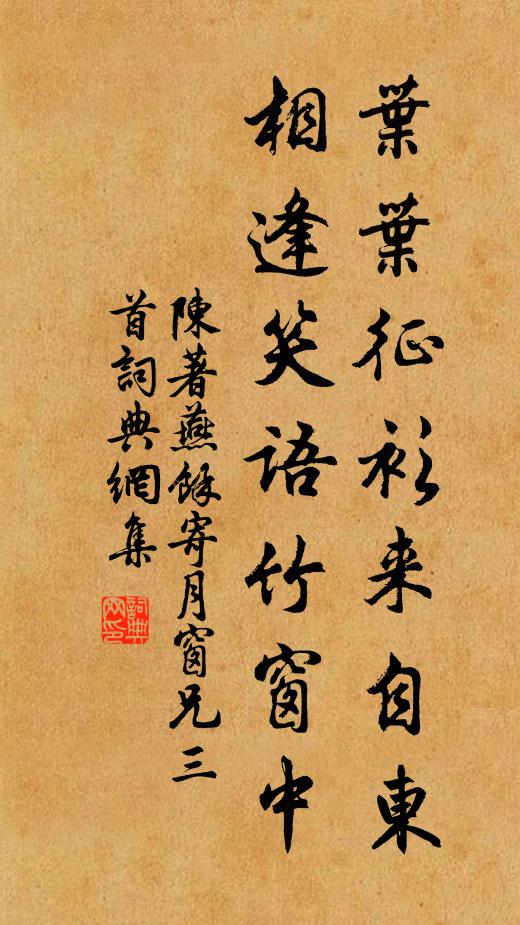 葉葉征衫来自東
相逢笑語竹窗中
陳著燕餘寄月窗兄三
首詞典網集
詞典
网印